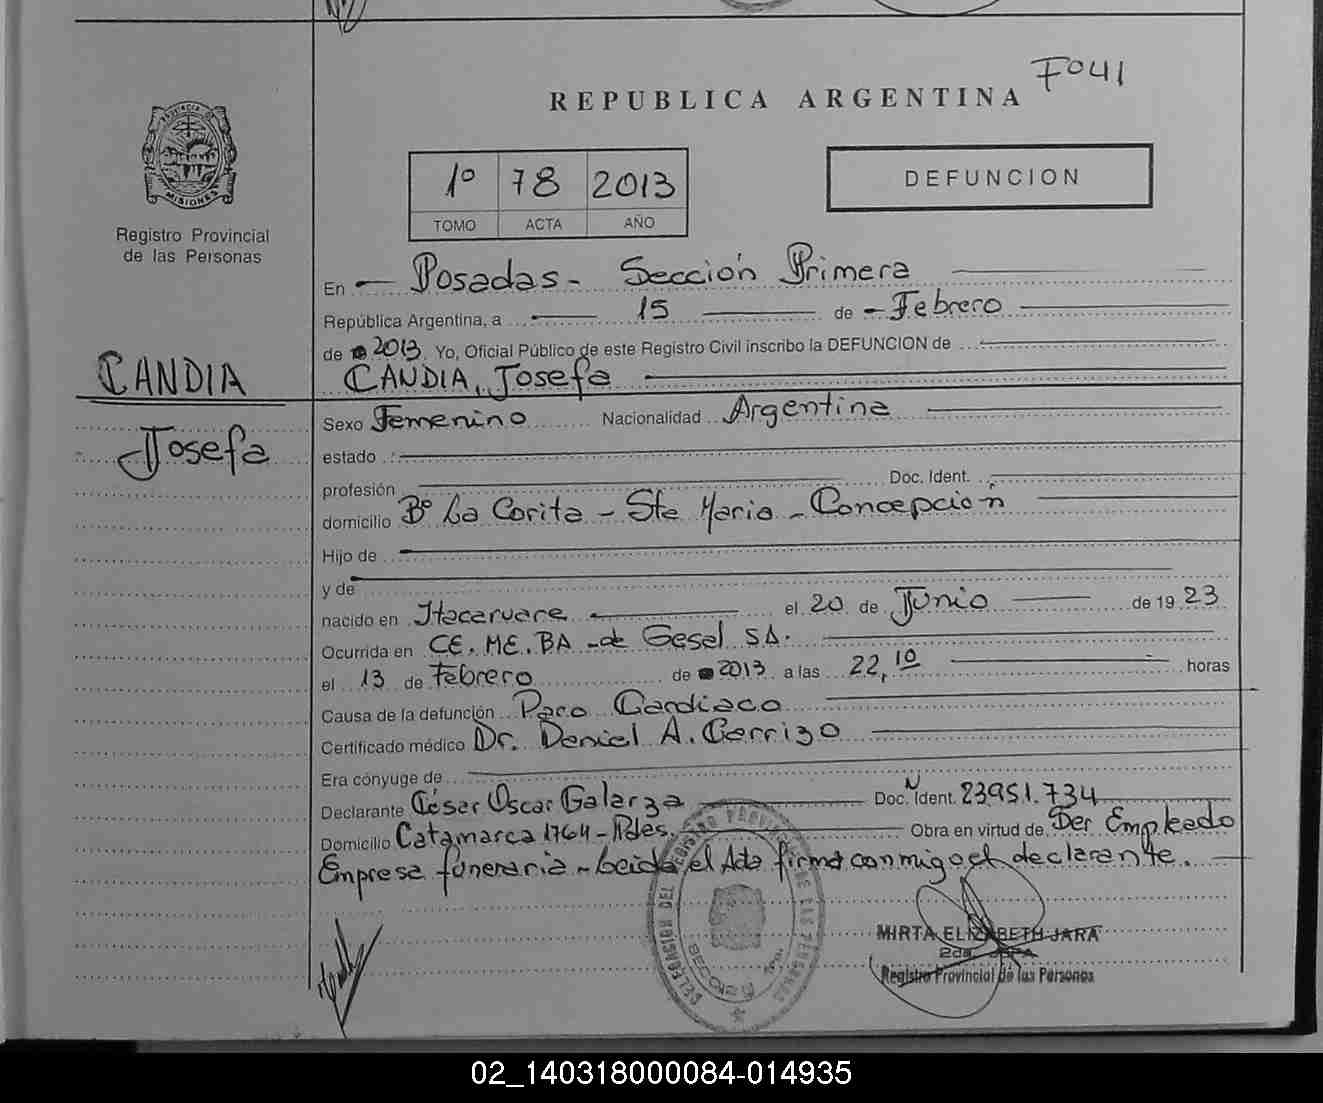 F041
REPUBLICA ARGENTINA
PROVINCIA DE
MISIONES
Registro Provincial
de las Personas
1º 78 2013
TOMO ACTA AÑO
DEFUNCION
En Posadas - Sección Primera
República Argentina, a 15 de Febrero
de 2013. Yo, Oficial Público de este Registro Civil inscribo la DEFUNCION de
CANDIA, Josefa
CANDIA
Josefa
Sexo Femenino Nacionalidad Argentina
estado
profesión Doc. Ident.
domicilio Bº La Corita - Sta Maria - Concepción
Hijo de
y de
nacido en Itacaruare el 20 de Junio de 19 23
Ocurrida en CE. ME. BA - de Gesel S.A.
el 13 de Febrero de 2013 a las 22,10 horas
Causa de la defunción Paro Cardiaco
Certificado médico Dr. Daniel A. Carrizo
Era cónyuge de
Declarante César Oscar Galarza Doc. Ident. 23951.734
Domicilio Catamarca 1764 - Pdas. Obra en virtud de Ser Empleado
Empresa funeraria - Leida el Acta firma conmigo el declarante.
DELEGACION DEL REGISTRO PROVINCIAL DE LAS PERSONAS
SECCION 1ra.
MIRTA ELIZABETH JARA
2da. JEFA
Registro Provincial de las Personas
02_140318000084-014935